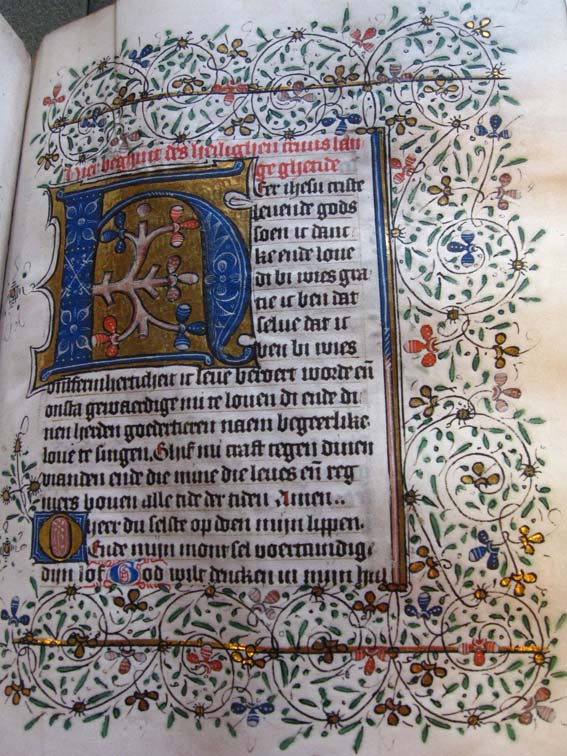 Hier beghint des heilighen cruus lan
ge ghetide
Her ihesu criste
leuende gods
soen ic danc
ke ende loue
di bi wies gra
tie ic ben dat
selue dat ic
ben bi wies
ontfermherticheit ic leue beroert worde eñ
onsta gewaerdige mi te louen di ende di
nen herden goedertieren naem begeerlike
loue te singen. Ghif mi craft tegen dinen
vianden ende die mine die leues eñ reg
niers bouen alle tide der tiden Amen..
O heer du selste op doen mijn lippen.
Ende mijn mont sel voertcundig
dijn lof. God wilt dencken in mijn hul